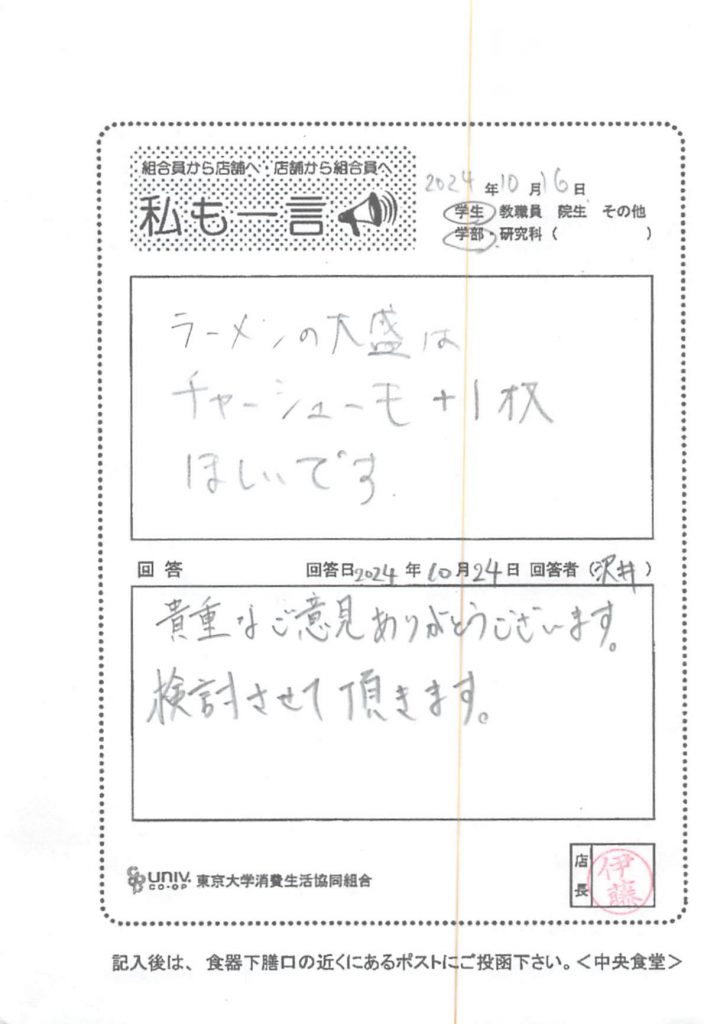 組合員から店舗へ・店舗から組合員へ
私も一言
2024年10月16日
学生 教職員 院生 その他
学部・研究科( )
ラーメンの大盛は
チャーシューも+1枚
ほしいです
回答 回答日2024年10月24日 回答者(沢井)
貴重なご意見ありがとうございます。
検討させて頂きます。
UNIV. CO-OP 東京大学消費生活協同組合
店長
伊藤
記入後は、食器下膳口の近くにあるポストにご投函下さい。<中央食堂>